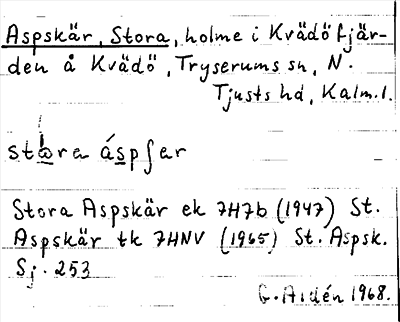 Aspskär, Stora, holme i Kvädöfjär-
den å Kvädö, Tryserums sn, N.
Tjusts hd, Kalm.l.
stɷra áspʃer
Stora Aspskär ek 7H7b (1947) St.
Aspskär tk 7HNV (1965) St. Aspsk.
Sj. 253
G. Aldén 1968.